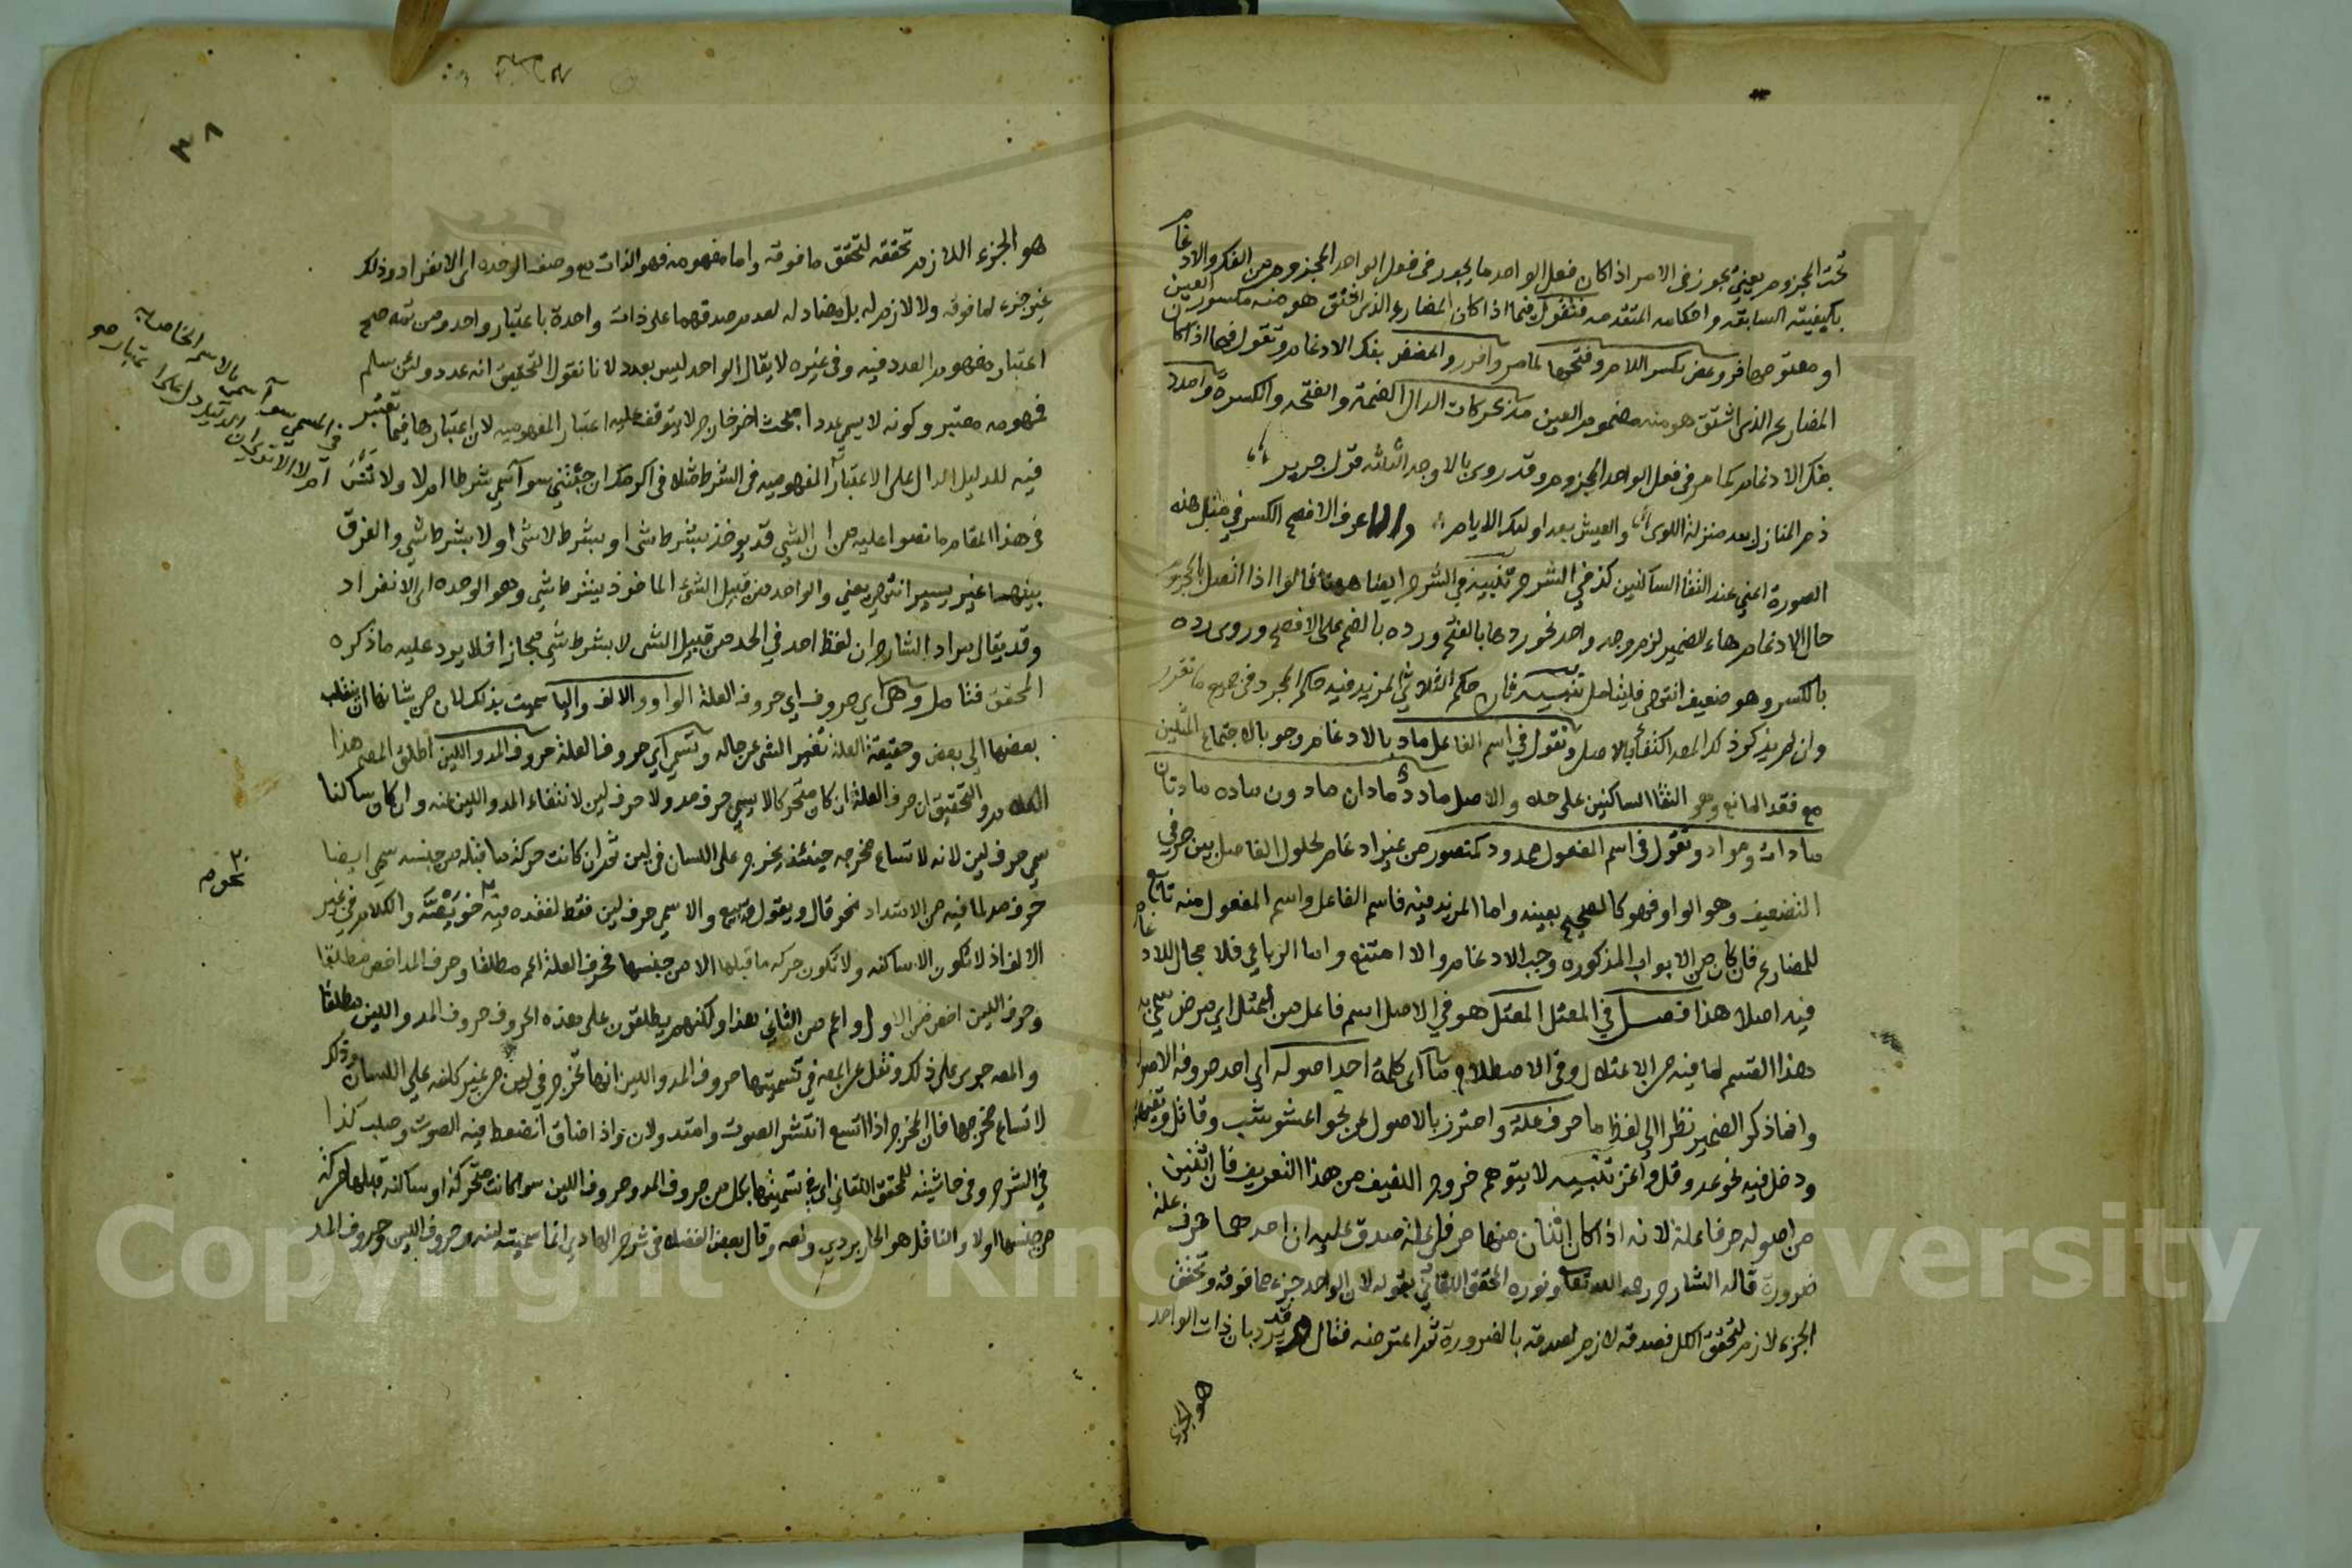 تحت المجزوم يعني يجوز في الامر اذا كان فعل الواحد ما يجوز في فعل الواحد المجزوم من الفك والادغام
بكيفيته السابقة واحكامه المتقدمة فتقول فيما اذا كان المضارع الذي اشتق هو منه مكسور العين
او مفتوحها فر وعض بكسر اللام وفتحها لما مر وافرر واعضض بفك الادغام وتقول فيما اذا كان
المضارع الذي اشتق هو منه مضموم العين مد بحركات الدال الضمة والفتحة والكسرة وامدد
بفك الادغام كما مر في فعل الواحد المجزوم وقد روي بالاوجه الثلاثة قول جرير
ذم المنازل بعد منزلة اللوى والعيش بعد اولئك الايام والاعرف الافصح الكسر في مثل هذه
الصورة اعني عند التقا الساكنين كذا في الشرح تنبيه في الشرح ايضا هنا قالوا اذا اتصل بالمجزوم
حال الادغام هاء الضمير لزم وجه واحد نحو ردها بالفتح ورده بالضم على الافصح وروي رده
بالكسر وهو ضعيف انتهى فليتامل تنبيه فان حكم الثلاثي المزيد فيه حكم المجرد في جميع ما تقرر
وان لم يذكر ذلك المص اكتفأ بالاصل وتقول في اسم الفاعل ماد بالادغام وجوبا لاجتماع المثلين
مع فقد المانع وهو التقا الساكنين على حده والاصل مادد مادان مادون ماده مادتان
مادات ومواد وتقول في اسم المفعول ممدود كمنصور من غير ادغام لحلول الفاصل بين حرفي
التضعيف وهو الواو فهو كالصحيح بعينه واما المزيد فيه فاسم الفاعل واسم المفعول منه تابع
للمضارع فان كان من الابواب المذكورة وجب الادغام والا امتنع واما الرباعي فلا مجال للادغام
فيه اصلا هذا فصل في المعتل المعتل هو في الاصل اسم فاعل من اعتل اي مرض سمي به
هذا القسم لما فيه من الاعتلال وفي الاصطلاح ما اي كلمة احد اصوله اي احد حروفه الاصول
وانما ذكر الضمير نظرا الى لفظ ما حرف علة واحترز بالاصول عن نحو اعشوشب وقاتل
ودخل فيه نحو عد وقل واغز تنبيه لا يتوهم خروج اللفيف من هذا التعريف فان اثنين
من اصوله حرفا علة لانه اذا كان اثنان منها حرفي علة صدق عليه ان احدهما حرف علة
ضرورة قاله الشارح رحمه الله تعالى ونوره المحقق اللقاني بقوله لان الواحد جزء مما فوقه وتحقق
الجزء لازم لتحقق الكل فصدقه لازم لصدقه بالضرورة ثم اعترضه فقال قد يرد بان ذات الواحد
هو الجزء
٣٨
هو الجزء اللازم تحققه لتحقق ما فوقه واما مفهومه فهو الذات مع وصف الوحدة اي الانفراد وذلك
غير جزء لما فوقه ولا لازم له بل مضاد له لعدم صدقهما على ذات واحدة باعتبار واحد ومن ثمه صح
اعتبار مفهوم العدد فيه وفي غيره لا يقال الواحد ليس بعدد لانا نقول التحقيق انه عدد ولئن سلم
فمفهومه معتبر وكونه لا يسمى عددا بحث اخر خارج لا يتوقف عليه اعتبار المفهومية لان اعتبارها فيما تعتبر
فيه للدليل الدال على الاعتبار المفهومية في الشرط مثلا في اكرمك ان جئتني سوآ سمي شرطا ام لا ولا تنس
في هذا المقام ما نصوا عليه من ان الشي قد يوخذ بشرط شي او بشرط لا شي او لا بشرط شي والفرق
بينهما غير يسير انتهى يعني والواحد من قبيل الشيء الماخوذ بشرط شي وهو الوحدة اي الانفراد
وقد يقال مراد الشارح ان لفظ احد في الحد من قبيل الشي لا بشرط شي مجازا فلا يرد عليه ما ذكره
المحقق فتامل وهي اي حروف اي حروف العلة الواو والالف واليا سميت بذلك لان من شانها ان ينقلب
بعضها الى بعض وحقيقة العلة تغير الشي عن حاله وتسمى اي حروف العلة حروف المد واللين اطلق المص هذا
الكلام والتحقيق ان حرف العلة ان كان متحركا لا يسمى حرف مد ولا حرف لين لانتفاء المد واللين منه وان كان ساكنا
سمي حرف لين لانه لاتساع مخرجه حينئذ يخرج على اللسان في لين ثم ان كانت حركة ما قبله من جنسه سمي ايضا
حرف مد لما فيه من الامتداد نحو قال ويقول ويبيع والا سمي حرف لين فقط لفقده فيه نحو والكلام في غير
الالف اذ لا تكون الا ساكنه ولا تكون حركه ما قبلها الا من جنسها فحرف العلة اعم مطلقا وحرف المد اخص مطلقا
وحرف اللين اخص من الاول واعم من الثاني هذا ولكنهم يطلقون على هذه الحروف حروف المد واللين مطلقا
والمص جرى على ذلك ونقل عن المص في تسميتها حروف المد واللين انها تخرج في لين من غير كلفة على اللسان وذلك
لاتساع مخرجها فان المخرج اذا اتسع انتشر الصوت وامتد ولان واذا ضاق انضغط فيه الصوت وصلب كذا
في الشرح وفي حاشيته للمحقق اللقاني اي في تسميتها بكل من حروف المد وحروف اللين سوا كانت متحركة او ساكنة قبلها حركة
من جنسها اولا والناقل هو الجاربردي ونصه وقال بعض الفضلا في شرح الهادي انما سميت لينه وحروف اللين وحروف المد